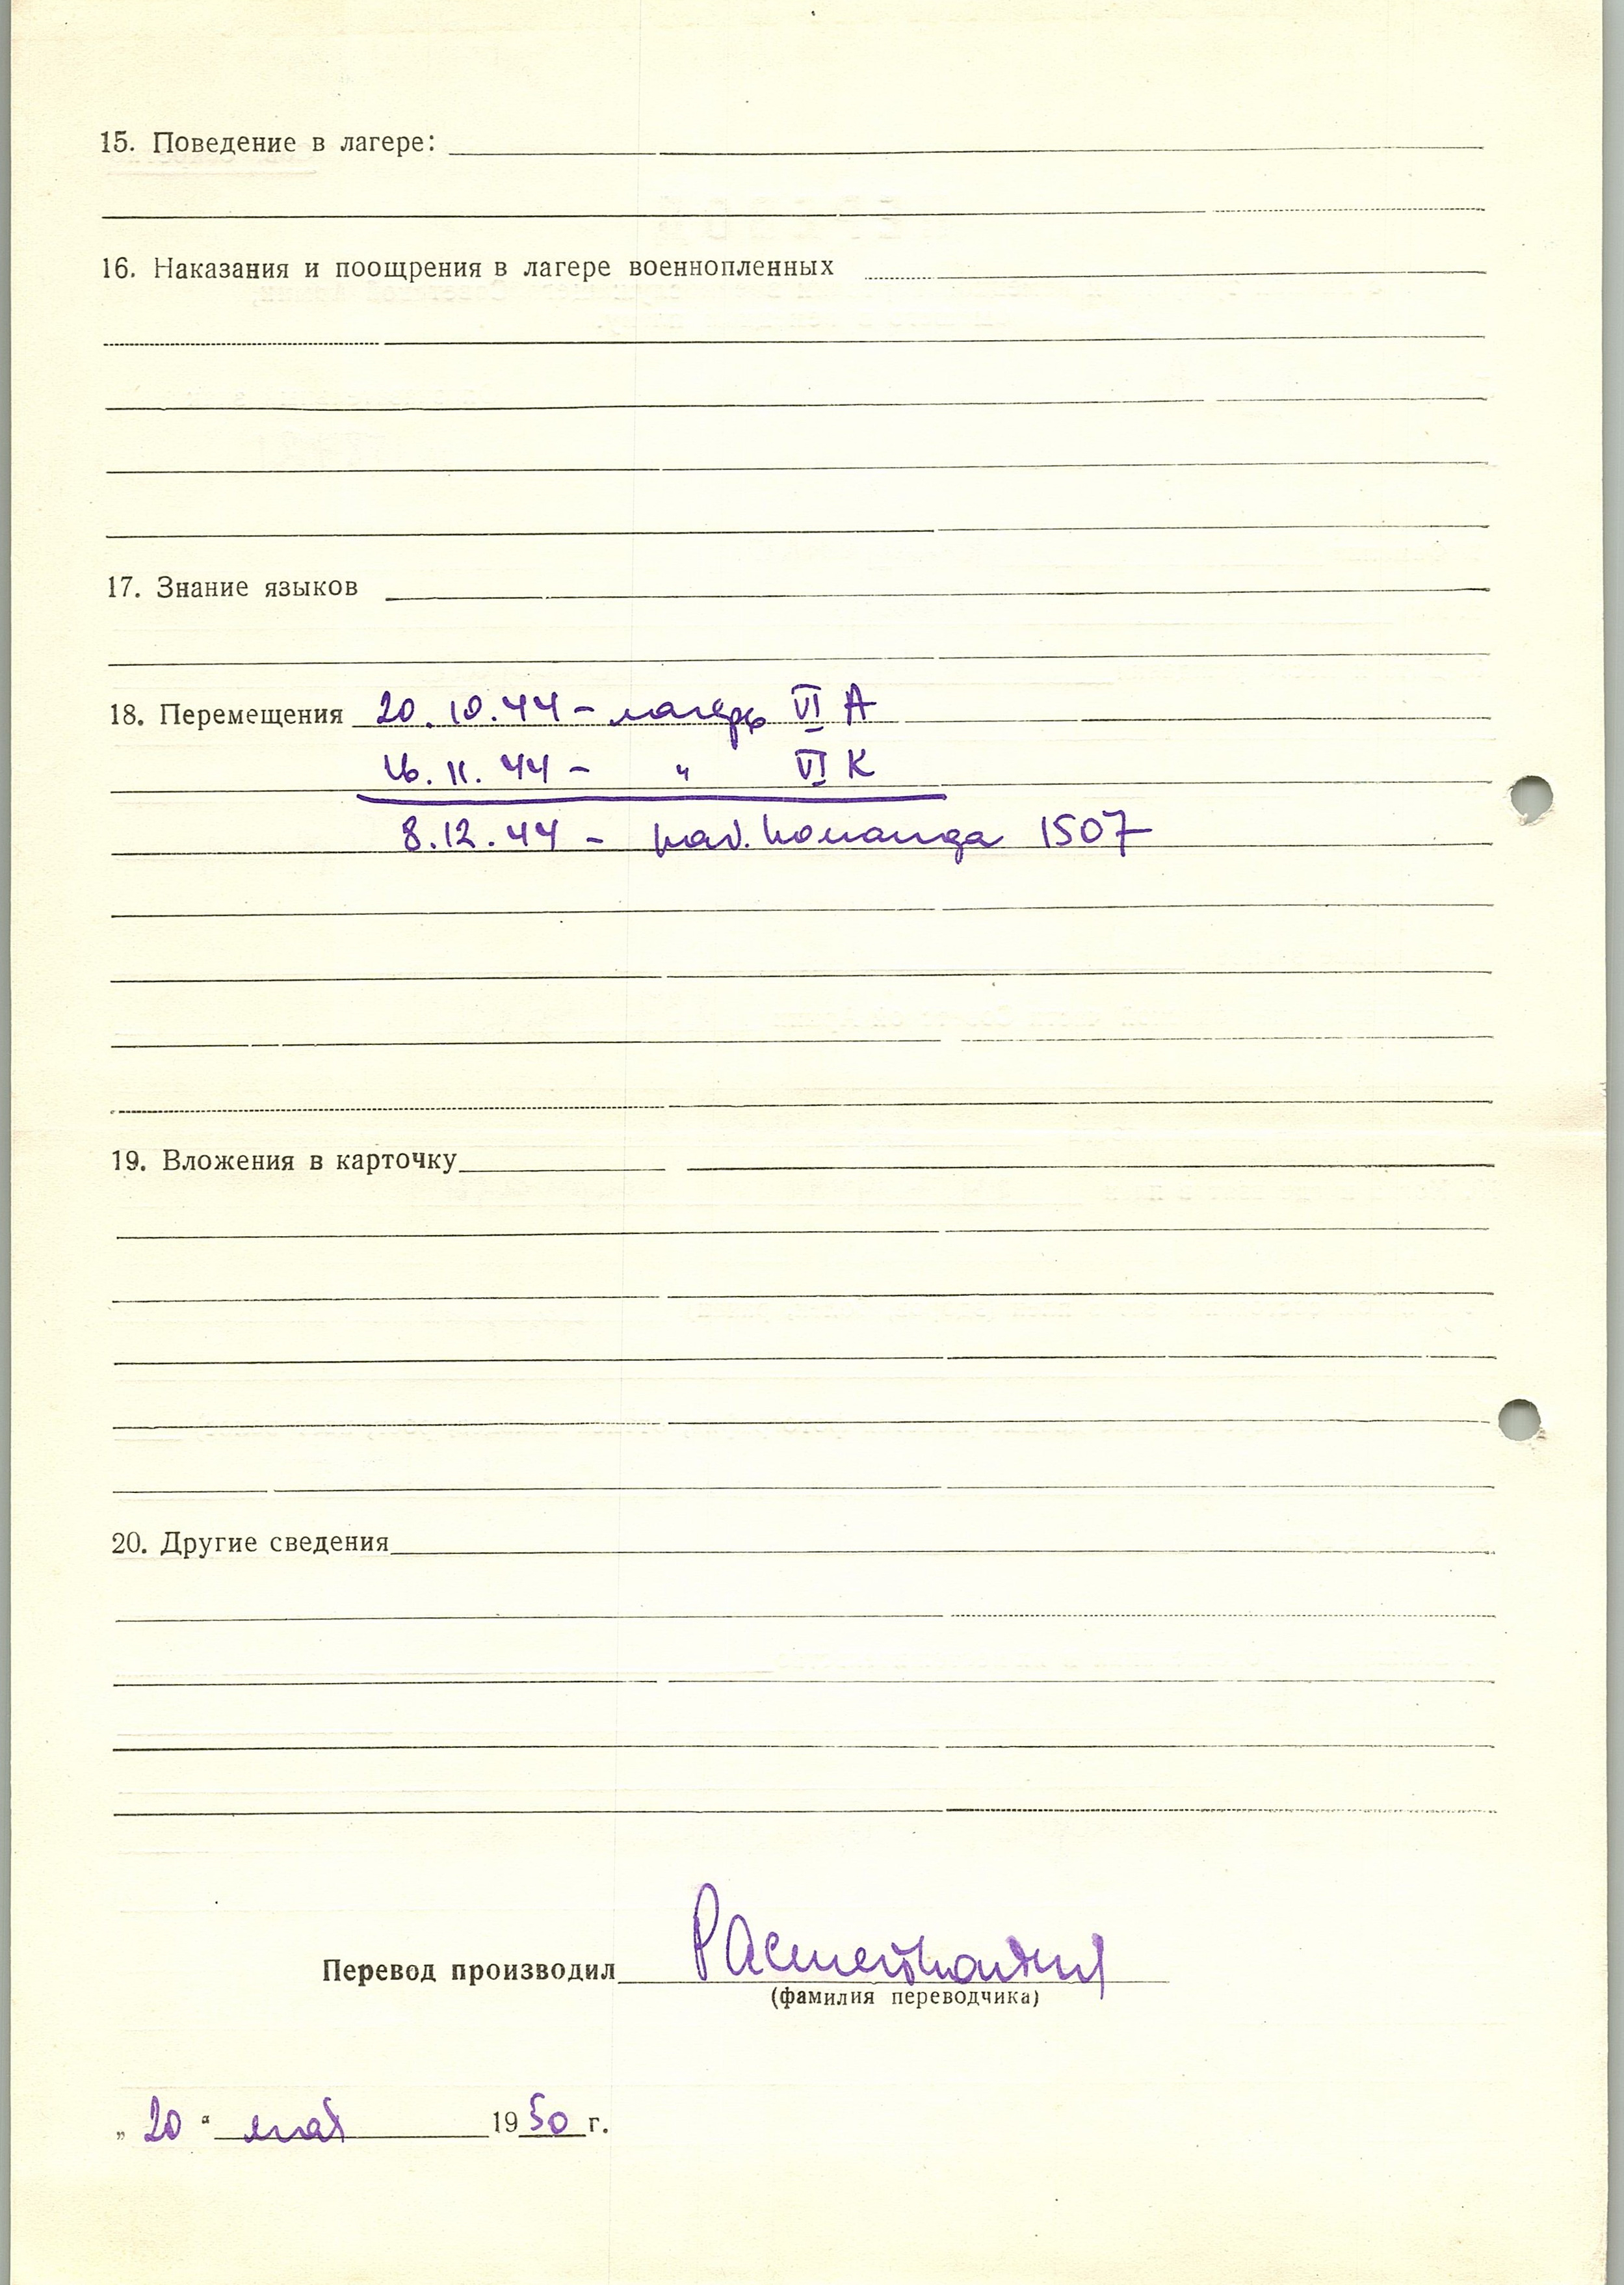 15. Поведение в лагере:
16. Наказания и поощрения в лагере военнопленных
17. Знание языков
18. Перемещения 20.10.44 – лагерь VI А
16.11.44 – " VI К
8.12.44 – раб. команда 1507
19. Вложения в карточку
20. Другие сведения
Перевод производил
(фамилия переводчика)
„20“ мая 1950 г.